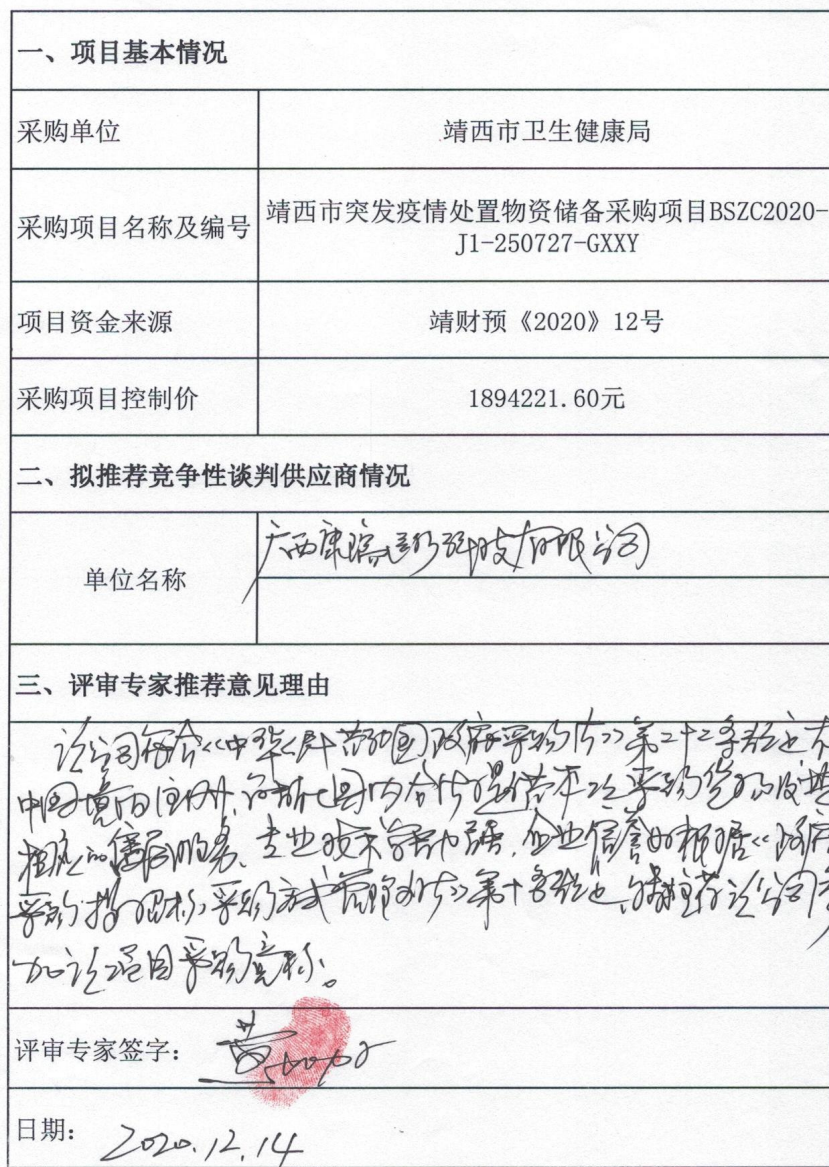 一、项目基本情况
采购单位
靖西市卫生健康局
采购项目名称及编号
靖西市突发疫情处置物资储备采购项目BSZC2020-
J1-250727-GXXY
项目资金来源
靖财预《2020》12号
采购项目控制价
1894221.60元
二、拟推荐竞争性谈判供应商情况
单位名称
广西康瑞医疗科技有限公司
三、评审专家推荐意见理由
该公司符合《中华人民共和国政府采购法》第二十二条规定
中国境内国内合法提供本次采购货物及
服务、专业技术能力强、企业信誉好根据《政府
采购非招标采购方式管理办法》第十条规定,特推荐该公司参
加该项目采购竞标。
评审专家签字:
日期:
2020.12.14